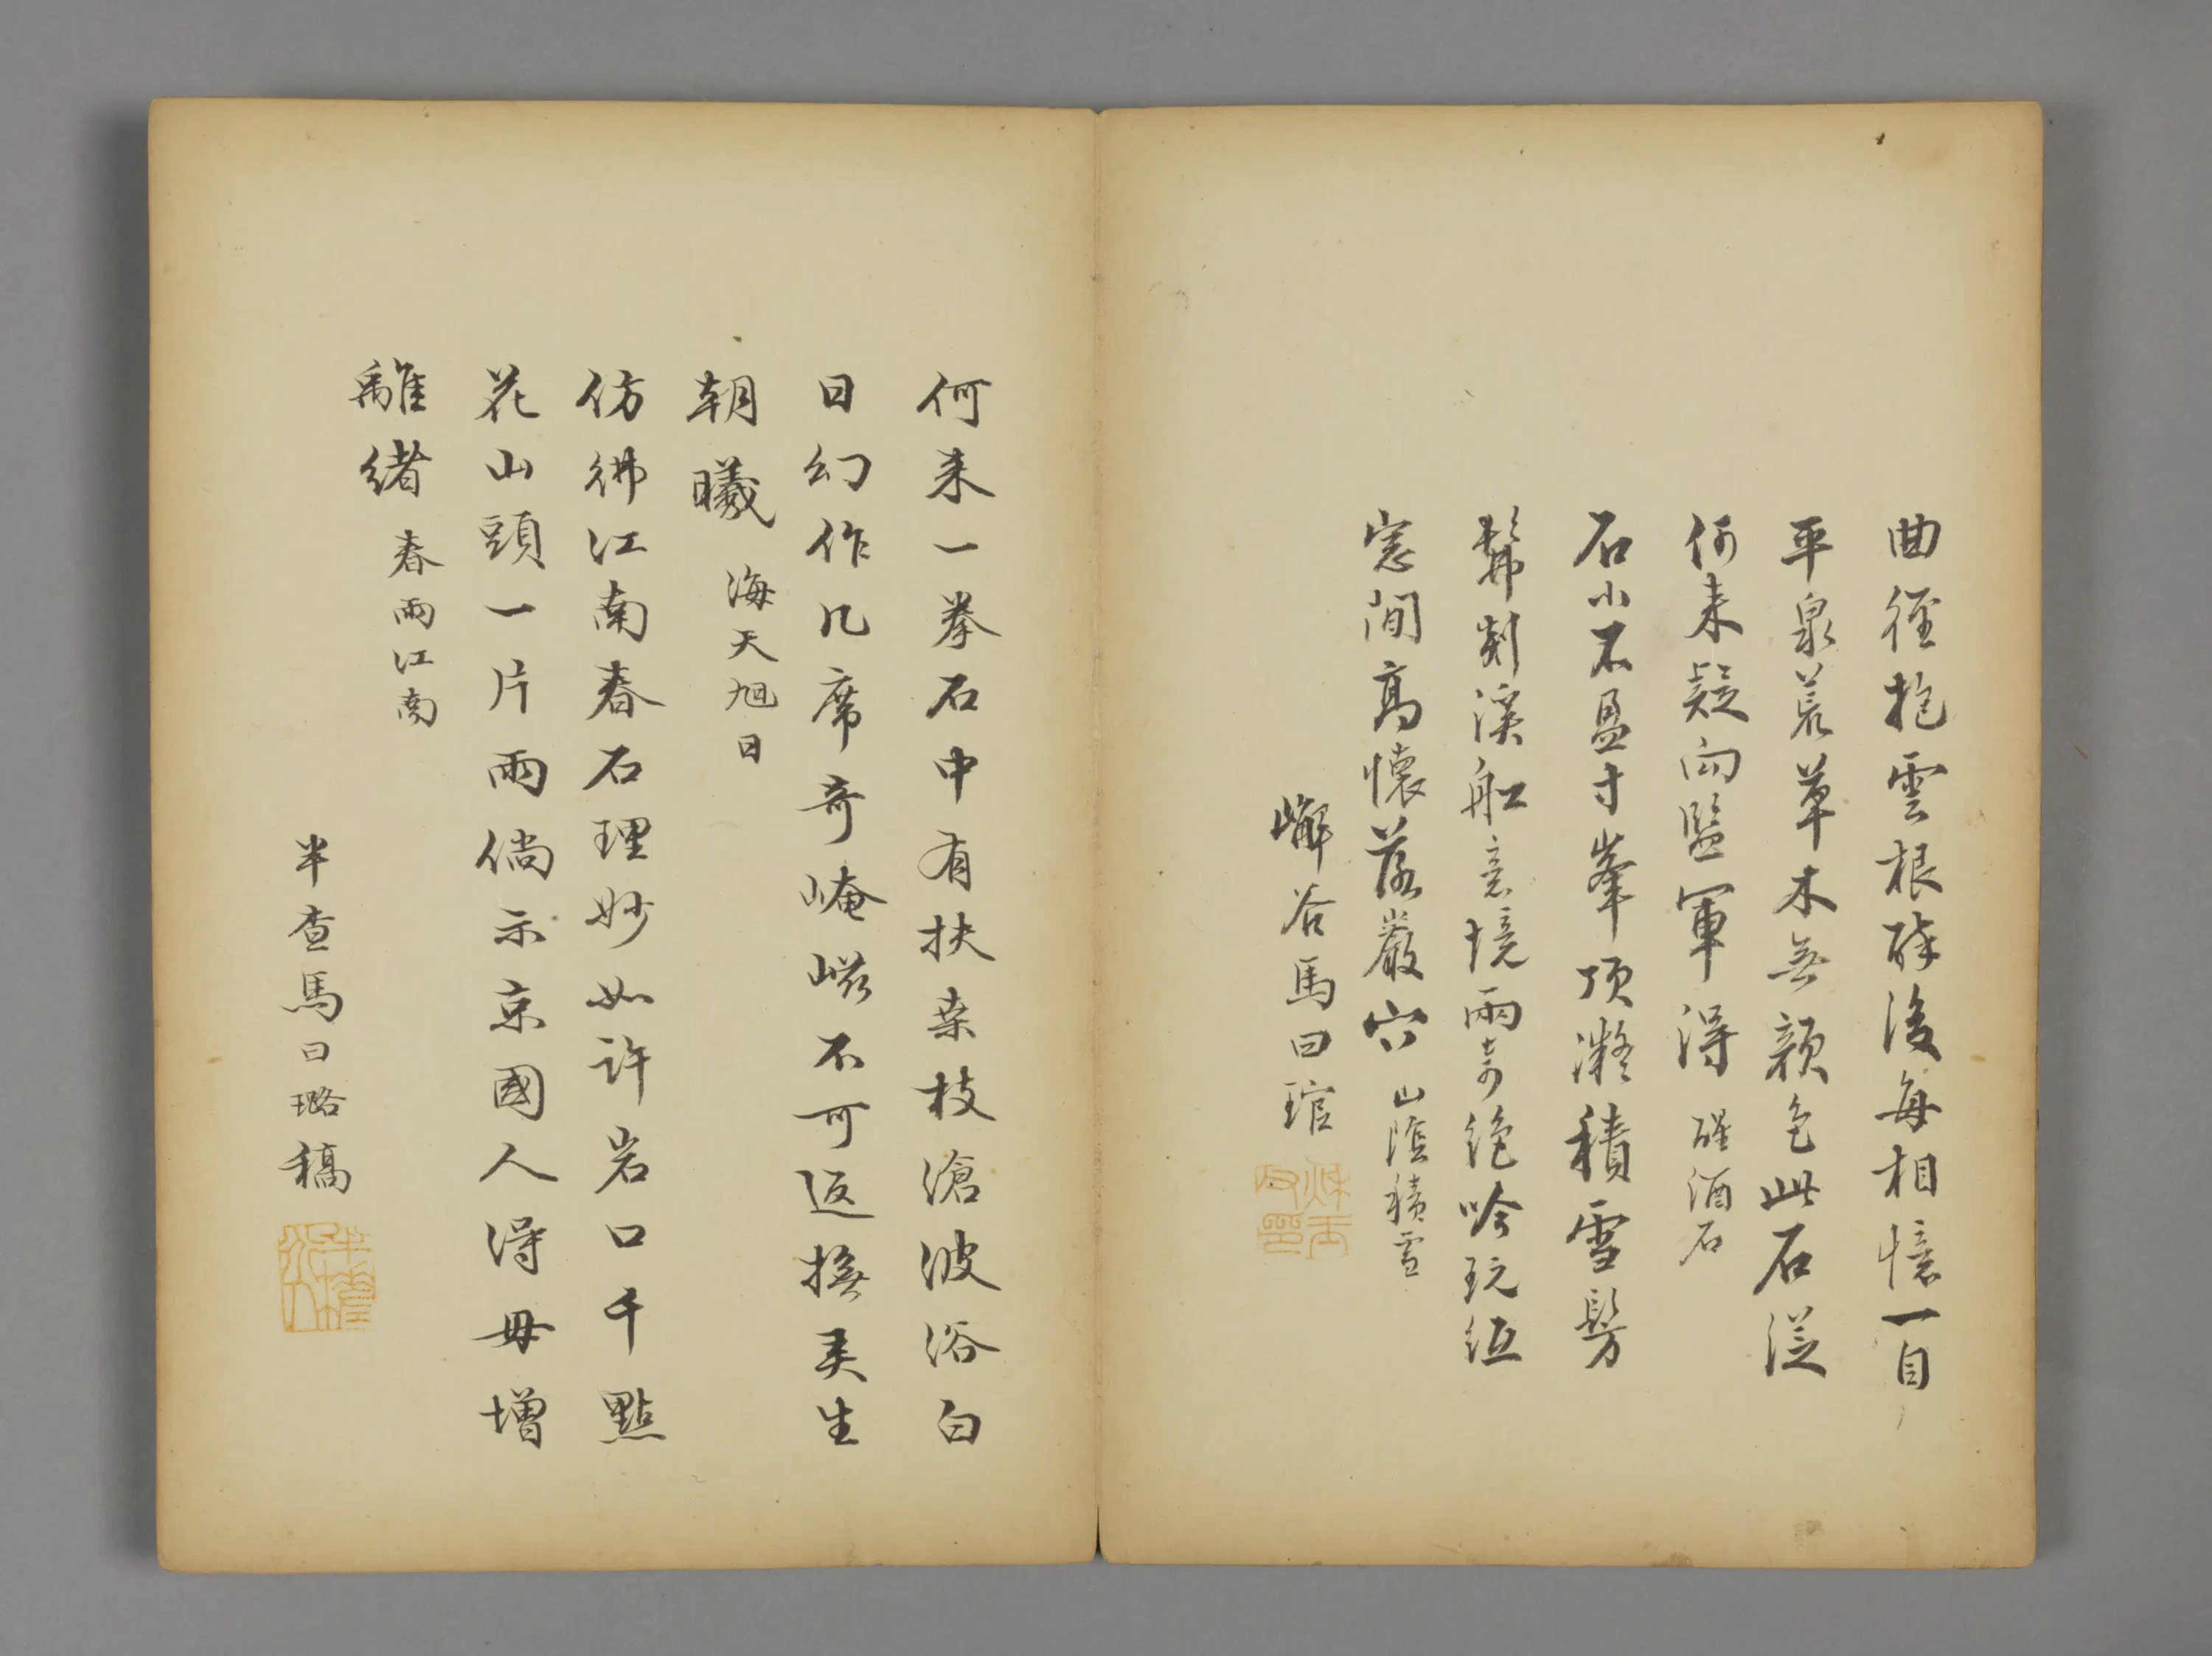 曲徑抱雲根醉後每相憶一自
平泉荒草木無顏色此石從
何来疑向監軍得 醒酒石
石小不盈寸峯頂凝積雪髣
髴剡溪舡意境兩奇絶吟玩紙
窓間髙懷落巖穴 山陰積雪
嶰谷馬曰琯
何来一拳石中有扶桒枝滄波浴白
日幻作几席奇崦嵫不可返撫景生
朝曦 海天旭日
仿彿江南春石理妙如許岩口千點
花山頭一片雨倘示京國人得毋增
離緒 春雨江南
半查馬曰璐稿